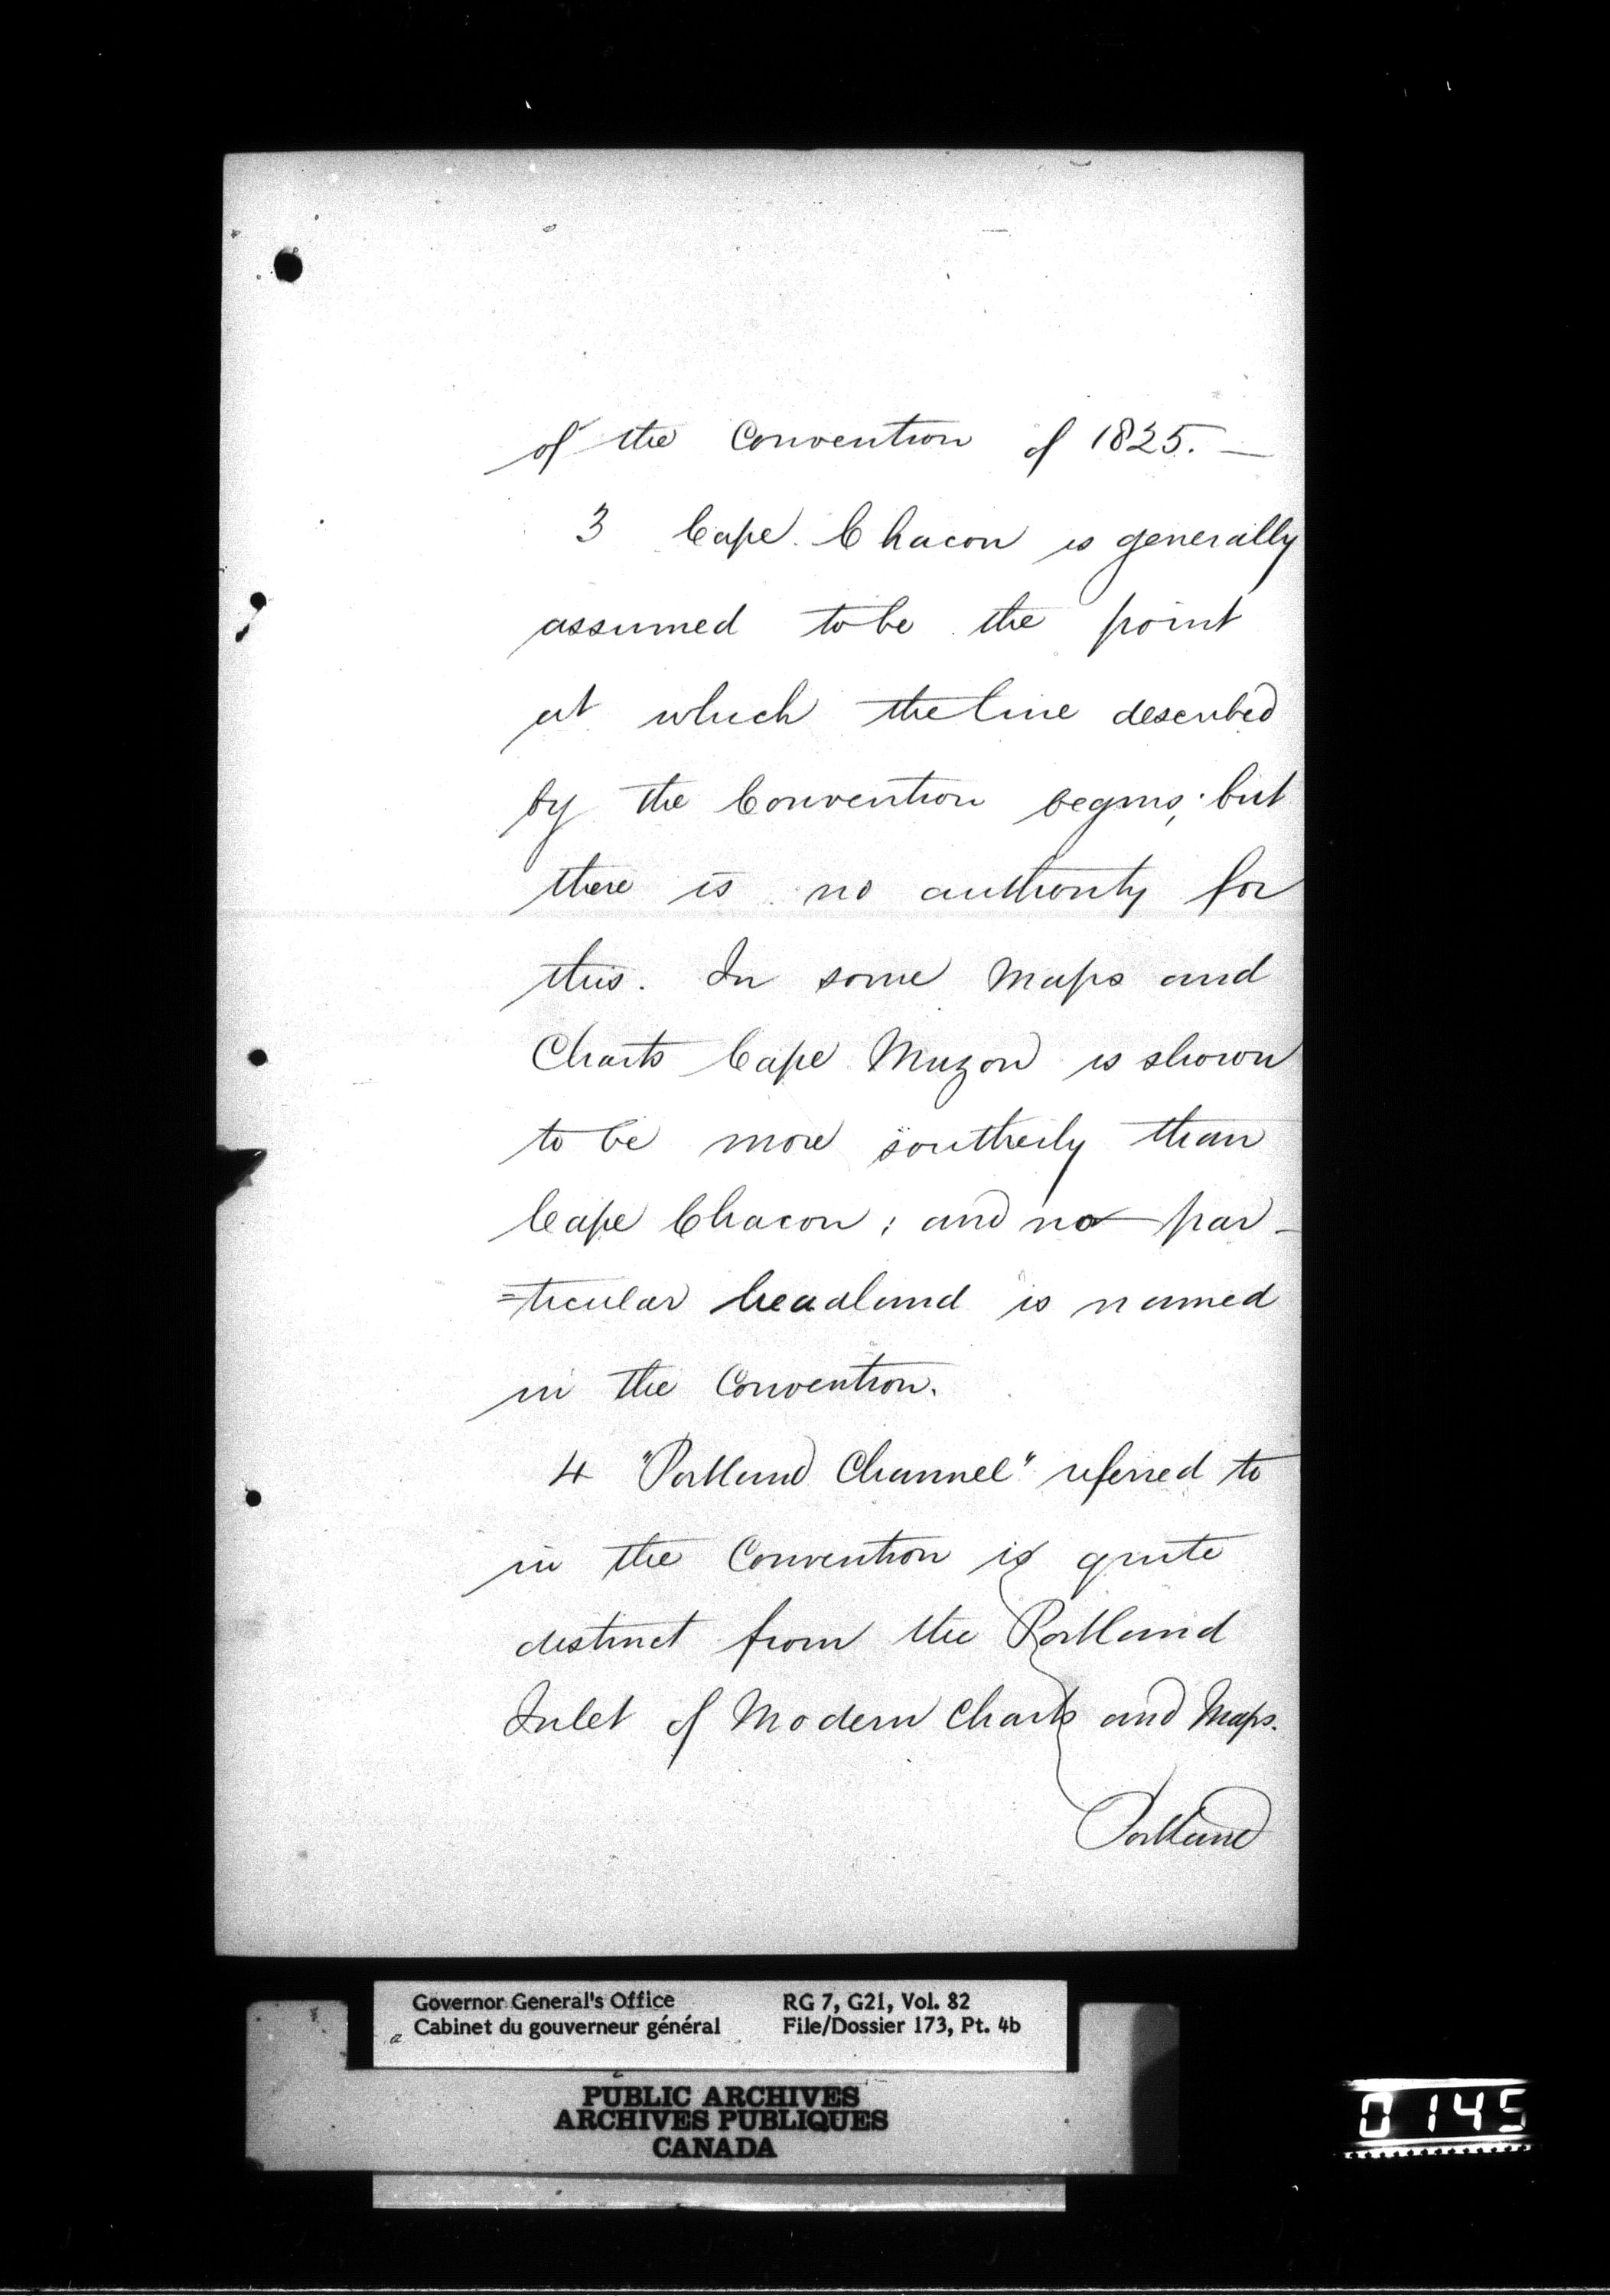 of the Convention of 1825. —
3 Cape Chacon is generally
assumed to be the point
at which the line described
by the Convention begins; but
there is no authority for
this. In some Maps and
Charts Cape Muzon is shown
to be more southerly than
Cape Chacon; and no par-
=ticular headland is named
in the Convention.
4 "Portland Channel" referred to
in the Convention is quite
distinct from the Portland
Inlet of Modern Charts and Maps.
Portland
Governor General's Office
Cabinet du gouverneur général
RG 7, G21, Vol. 82
File/Dossier 173, Pt. 4b
PUBLIC ARCHIVES
ARCHIVES PUBLIQUES
CANADA
0145